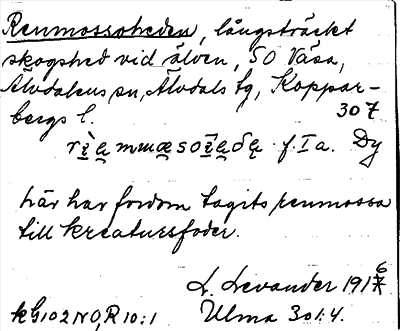 Renmossoheden, långsträckt
skogshed vid älven, SO Väsa,
Älvdalens sn, Älvdals tg, Koppar-
bergs l.
307
f. Ia. Dy
här har fordom tagits renmossa
till kreatursfoder.
L. Levander 1916
kG102NO,R10:1 Ulma 301:4.